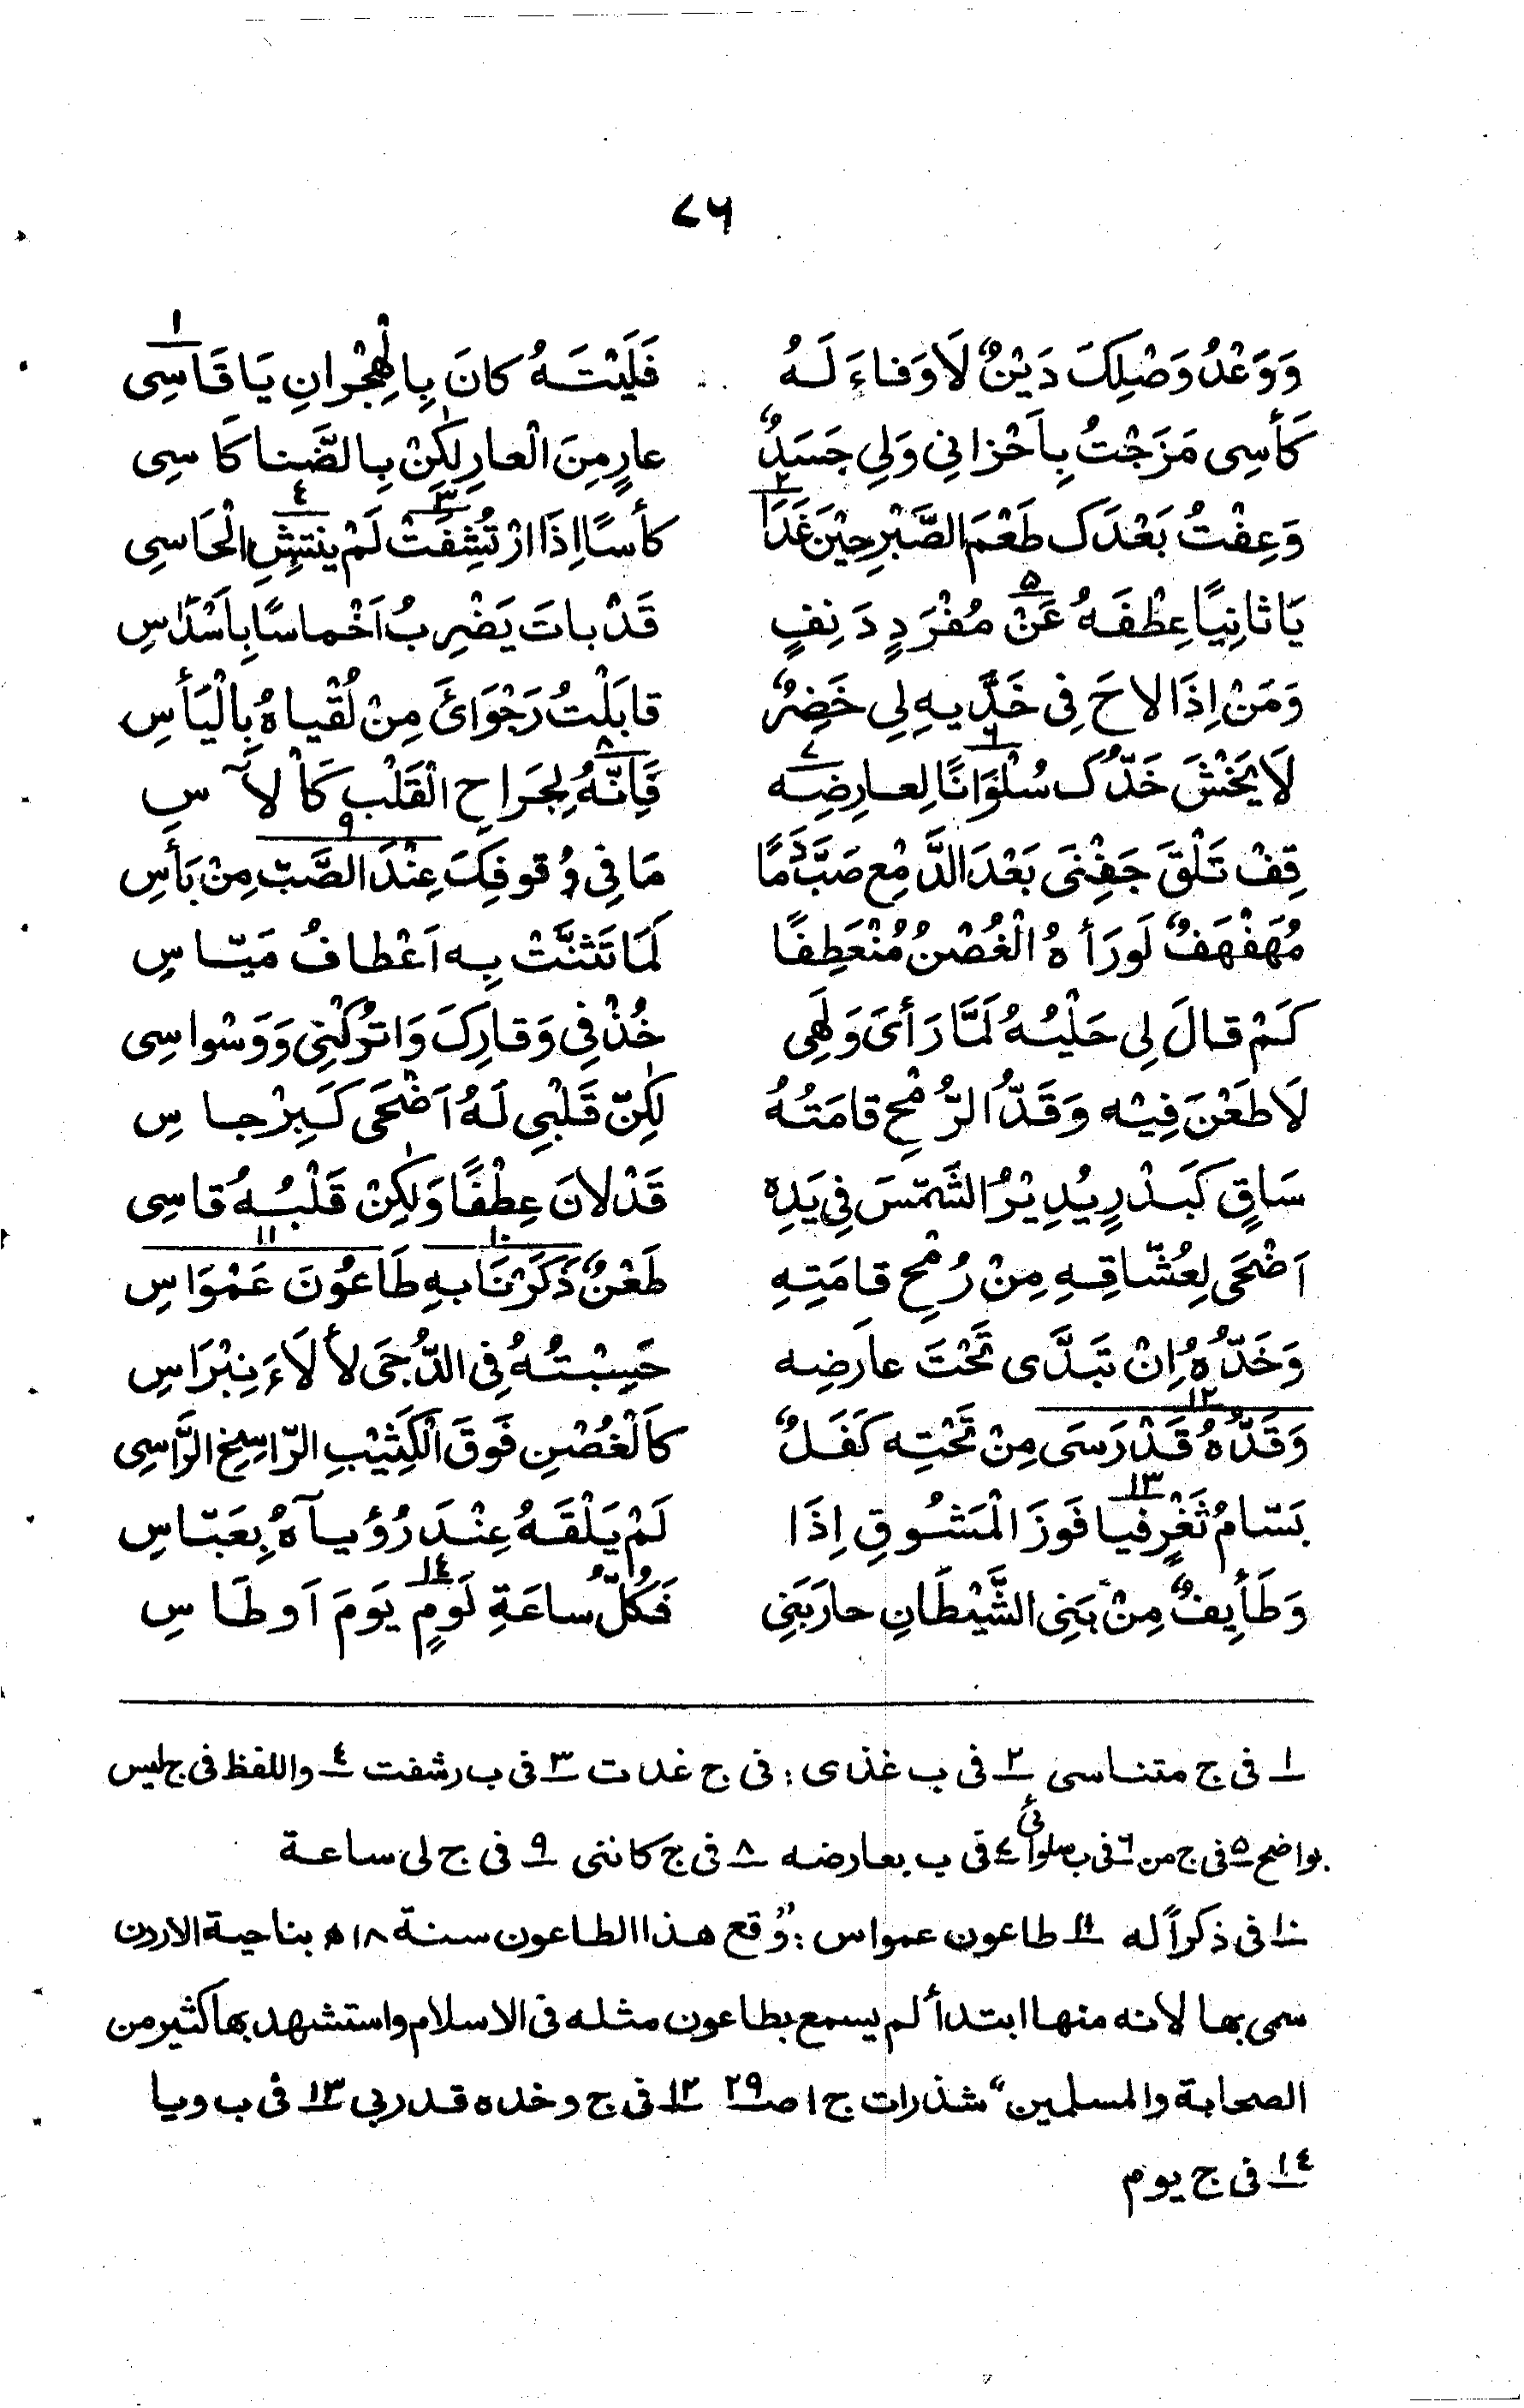 ۷۶
وَوَعْدُ وَصْلِكَ دَيْنٌ لَا وَفاءَ لَهُ فَلَيْتَهُ كانَ بِالْهِجْرانِ يَا قَاسِى ١
كَأْسِى مَزَجْتُ بِاَحْزانِى وَلِى جَسَدٌ عارٍ مِنَ الْعارِ لٰكِنْ بِالضَّنا كَاسِى
وَعِفْتُ بَعْدَكَ طَعْمَ الصَّبْرِ حِيْنَ غَدَا ٢ كأْسًا اِذَا ارْتُشِفَتْ ٣ لَمْ ينتشِ ٤ الْحَاسِى
يَا ثانِيًا عِطْفَهُ عَنْ ٥ مُفْرَدٍ دَنِفٍ قَدْ باتَ يَضْرِبُ اَخْماسًا بِاَسْدَاسِ
وَمَنْ اِذَا لاحَ فِى خَدَّيهِ لِى خَضِرٌ قابَلْتُ رَجْوَائَ مِنْ لُقْياهُ بِالْيَأْسِ
لَا يَخْشَ خَدُّكَ سُلْوَانًا ٦ لِعارِضِه ٧ فَاِنَّهُ ٨ لِجَراحِ الْقَلْبِ كَاْلآسِ
قِفْ تَلْقَ جَفْنِىَ بَعْدَ الدَّمْعِ صَبَّ دَمًا مَا فِى وُقوفِكَ ٩ عِنْدَ الصَّبِّ مِنْ بَأْسِ
مُهَفْهَفٌ لَورَأهُ الْغُصْنُ مُنْعَطِفًا لَمَا تَثَنَّتْ بِه اَعْطافُ مَيّاسِ
كَمْ قالَ لِى حَلْيُهُ لَمَّا رَأىَ وَلَهِى خُذْ فِى وَقارِكَ وَاتْرُكْنِى وَوَسْواسِى
لَا طَعْنَ فِيْه وَقَدُّ الرُّمْحِ قامَتُهُ لٰكِنّ قَلْبِى لَهُ اَضْحَى كَبِرْجاسِ
سَاقٍ كَبَدْرٍ يُدِيْرُ الشَّمْسَ فِى يَدِهِ قَدْ لانَ عِطْفًا وَلٰكِنْ قَلْبُهُ قاسِى
اَضْحَى لِعُشّاقِهِ مِنْ رُمْحِ قامَتِهِ طَعْنٌ ذَكَرْنَا بهِ ١٠ طَاعُونَ عَمْوَاسِ ١١
وَخَدُّهُ اِنْ تَبَدَّى تَحْتَ عارَضِه حَسِبْتُهُ فِى الدُّجَى لأْلَاءَ نِبْرَاسِ
وَقَدُّهُ قَدْ رَسَى ١٢ مِنْ تَحْتِه كَفَلٌ كاَلْغُصْنِ فَوقَ الْكَثِيْبِ الرّاسِخِ الرَّاسِى
بَسّامُ ثَغْرٍ فيا ١٣ فَوزَ الْمَشُوقِ اِذَا لَمْ يَلْقَهُ عِنْدَ رُؤْيآهُ بِعَبّاسِ
وَطَأيِفٌ مِنْ بَنِى الشَّيْطَانِ حارَبَنِى فَكُلُّ ساعَةِ لَومٍ ١٤ يَومَ اَوطَاسِ
١ فى ج متناسى ٢ فى ب غذى : فى ج غدت ٣ فى ب رشفت ٤ واللفظ فى ج ليس
بواضح ٥ فى ج من ٦ فى ب سلوائى ٧ فى ب بعارضه ٨ فى ج كاننى ٩ فى ج لى ساعة
١٠ فى ذكراً له ١١ طاعون عمواس : "وقع هذا الطاعون سنة ١٨ھ بناحية الاردن
سمى بها لانه منها ابتدأ لم يسمع بطاعون مثله فى الاسلام واستشهد بها كثير من
الصحابة والمسلمين" شذرات ج ١ صـ ٢٩ ١٢ فى ج وخده قد ربى ١٣ فى ب ويا
١٤ فى ج يوم